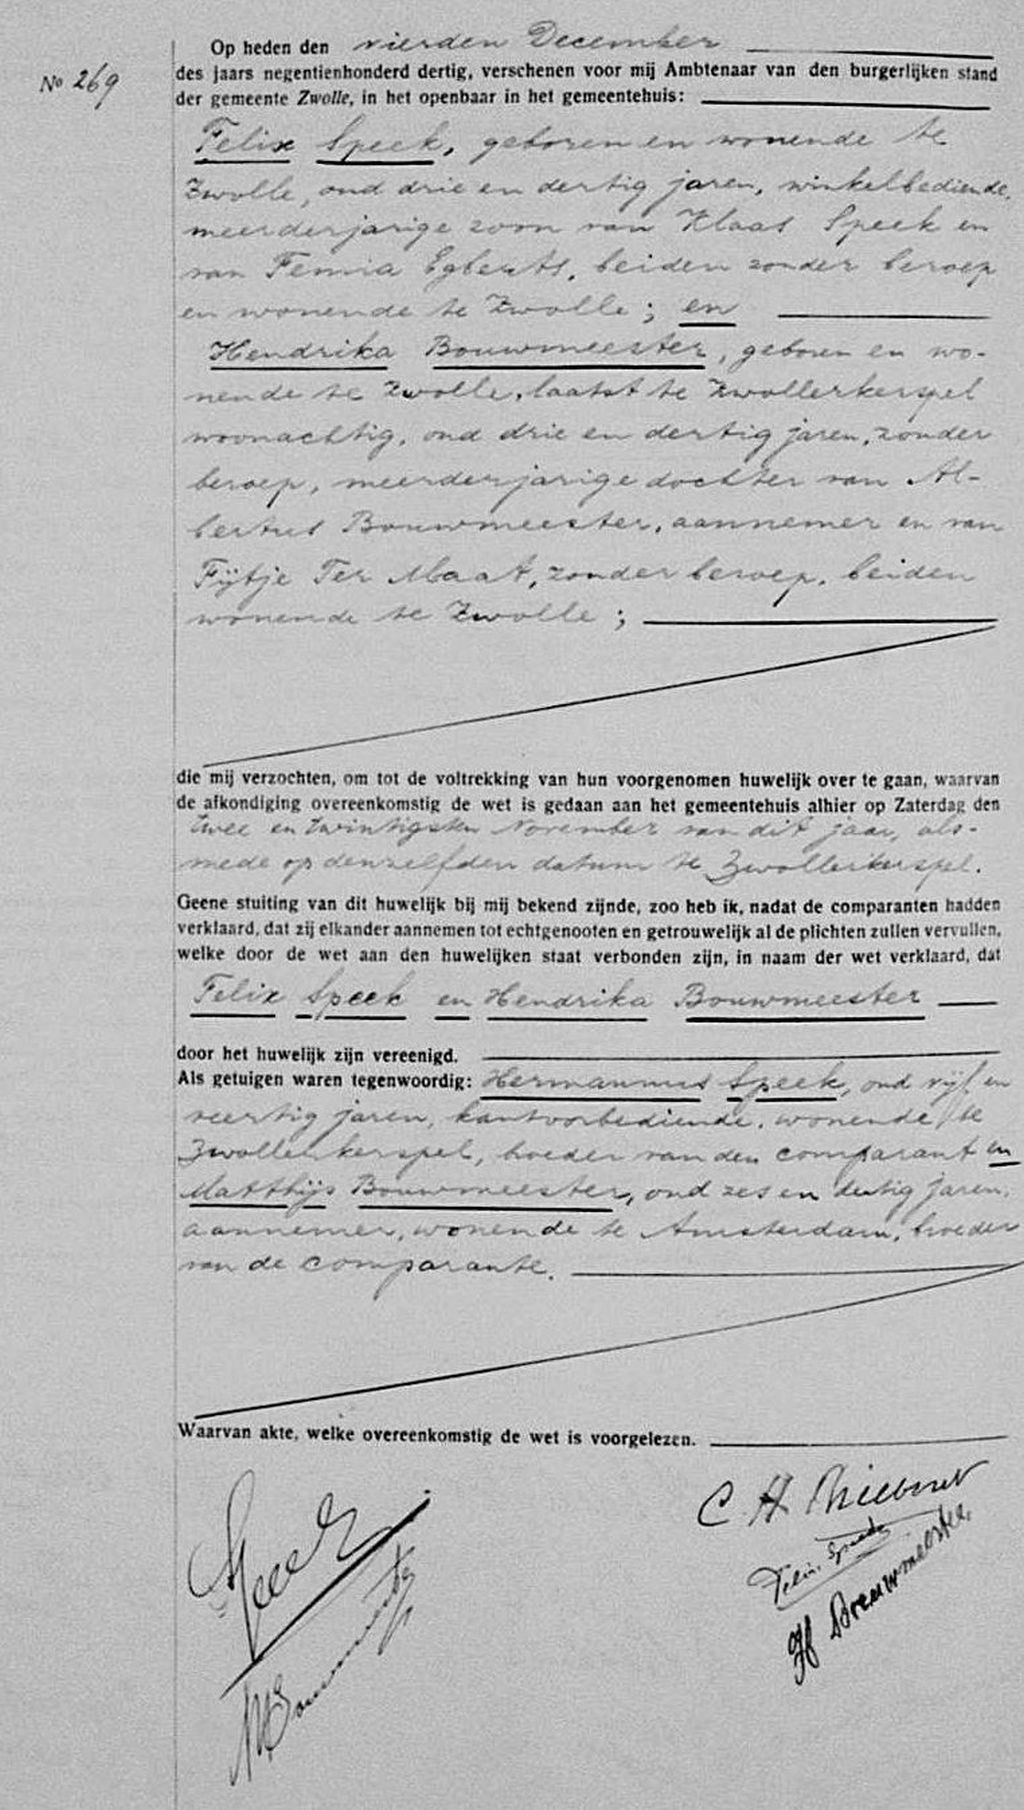 Op heden den vierden December
No 269
des jaars negentienhonderd dertig, verschenen voor mij Ambtenaar van den burgerlijken stand
der gemeente Zwolle, in het openbaar in het gemeentehuis:
Felix Speek, geboren en wonende te
Zwolle, oud drie en dertig jaren, winkelbediende,
meerderjarige zoon van Klaas Speek en
van Femia Egberts, beiden zonder beroep
en wonende te Zwolle; en
Hendrika Bouwmeester, geboren en wo-
nende te Zwolle, laatst te Zwollerkerspel
woonachtig, oud drie en dertig jaren, zonder
beroep, meerderjarige dochter van Al-
bertus Bouwmeester, aannemer en van
Fijtje Ter Maat, zonder beroep, beiden
wonende te Zwolle;
die mij verzochten, om tot de voltrekking van hun voorgenomen huwelijk over te gaan, waarvan
de afkondiging overeenkomstig de wet is gedaan aan het gemeentehuis alhier op Zaterdag den
twee en twintigsten November van dit jaar, als-
mede op denzelfden datum te Zwollerkerspel.
Geene stuiting van dit huwelijk bij mij bekend zijnde, zoo heb ik, nadat de comparanten hadden
verklaard, dat zij elkander aannemen tot echtgenooten en getrouwelijk al de plichten zullen vervullen,
welke door de wet aan den huwelijken staat verbonden zijn, in naam der wet verklaard, dat
Felix Speek en Hendrika Bouwmeester
door het huwelijk zijn vereenigd.
Als getuigen waren tegenwoordig: Hermannus Speek, oud vijf en
veertig jaren, kantoorbediende, wonende te
Zwollerkerspel, broeder van den comparant en
Matthijs Bouwmeester, oud zes en dertig jaren,
aannemer, wonende te Amsterdam, broeder
van de comparante.
Waarvan akte, welke overeenkomstig de wet is voorgelezen.
Speek
C H
Felix Speek
H Bouwmeester
M Bouwmeester